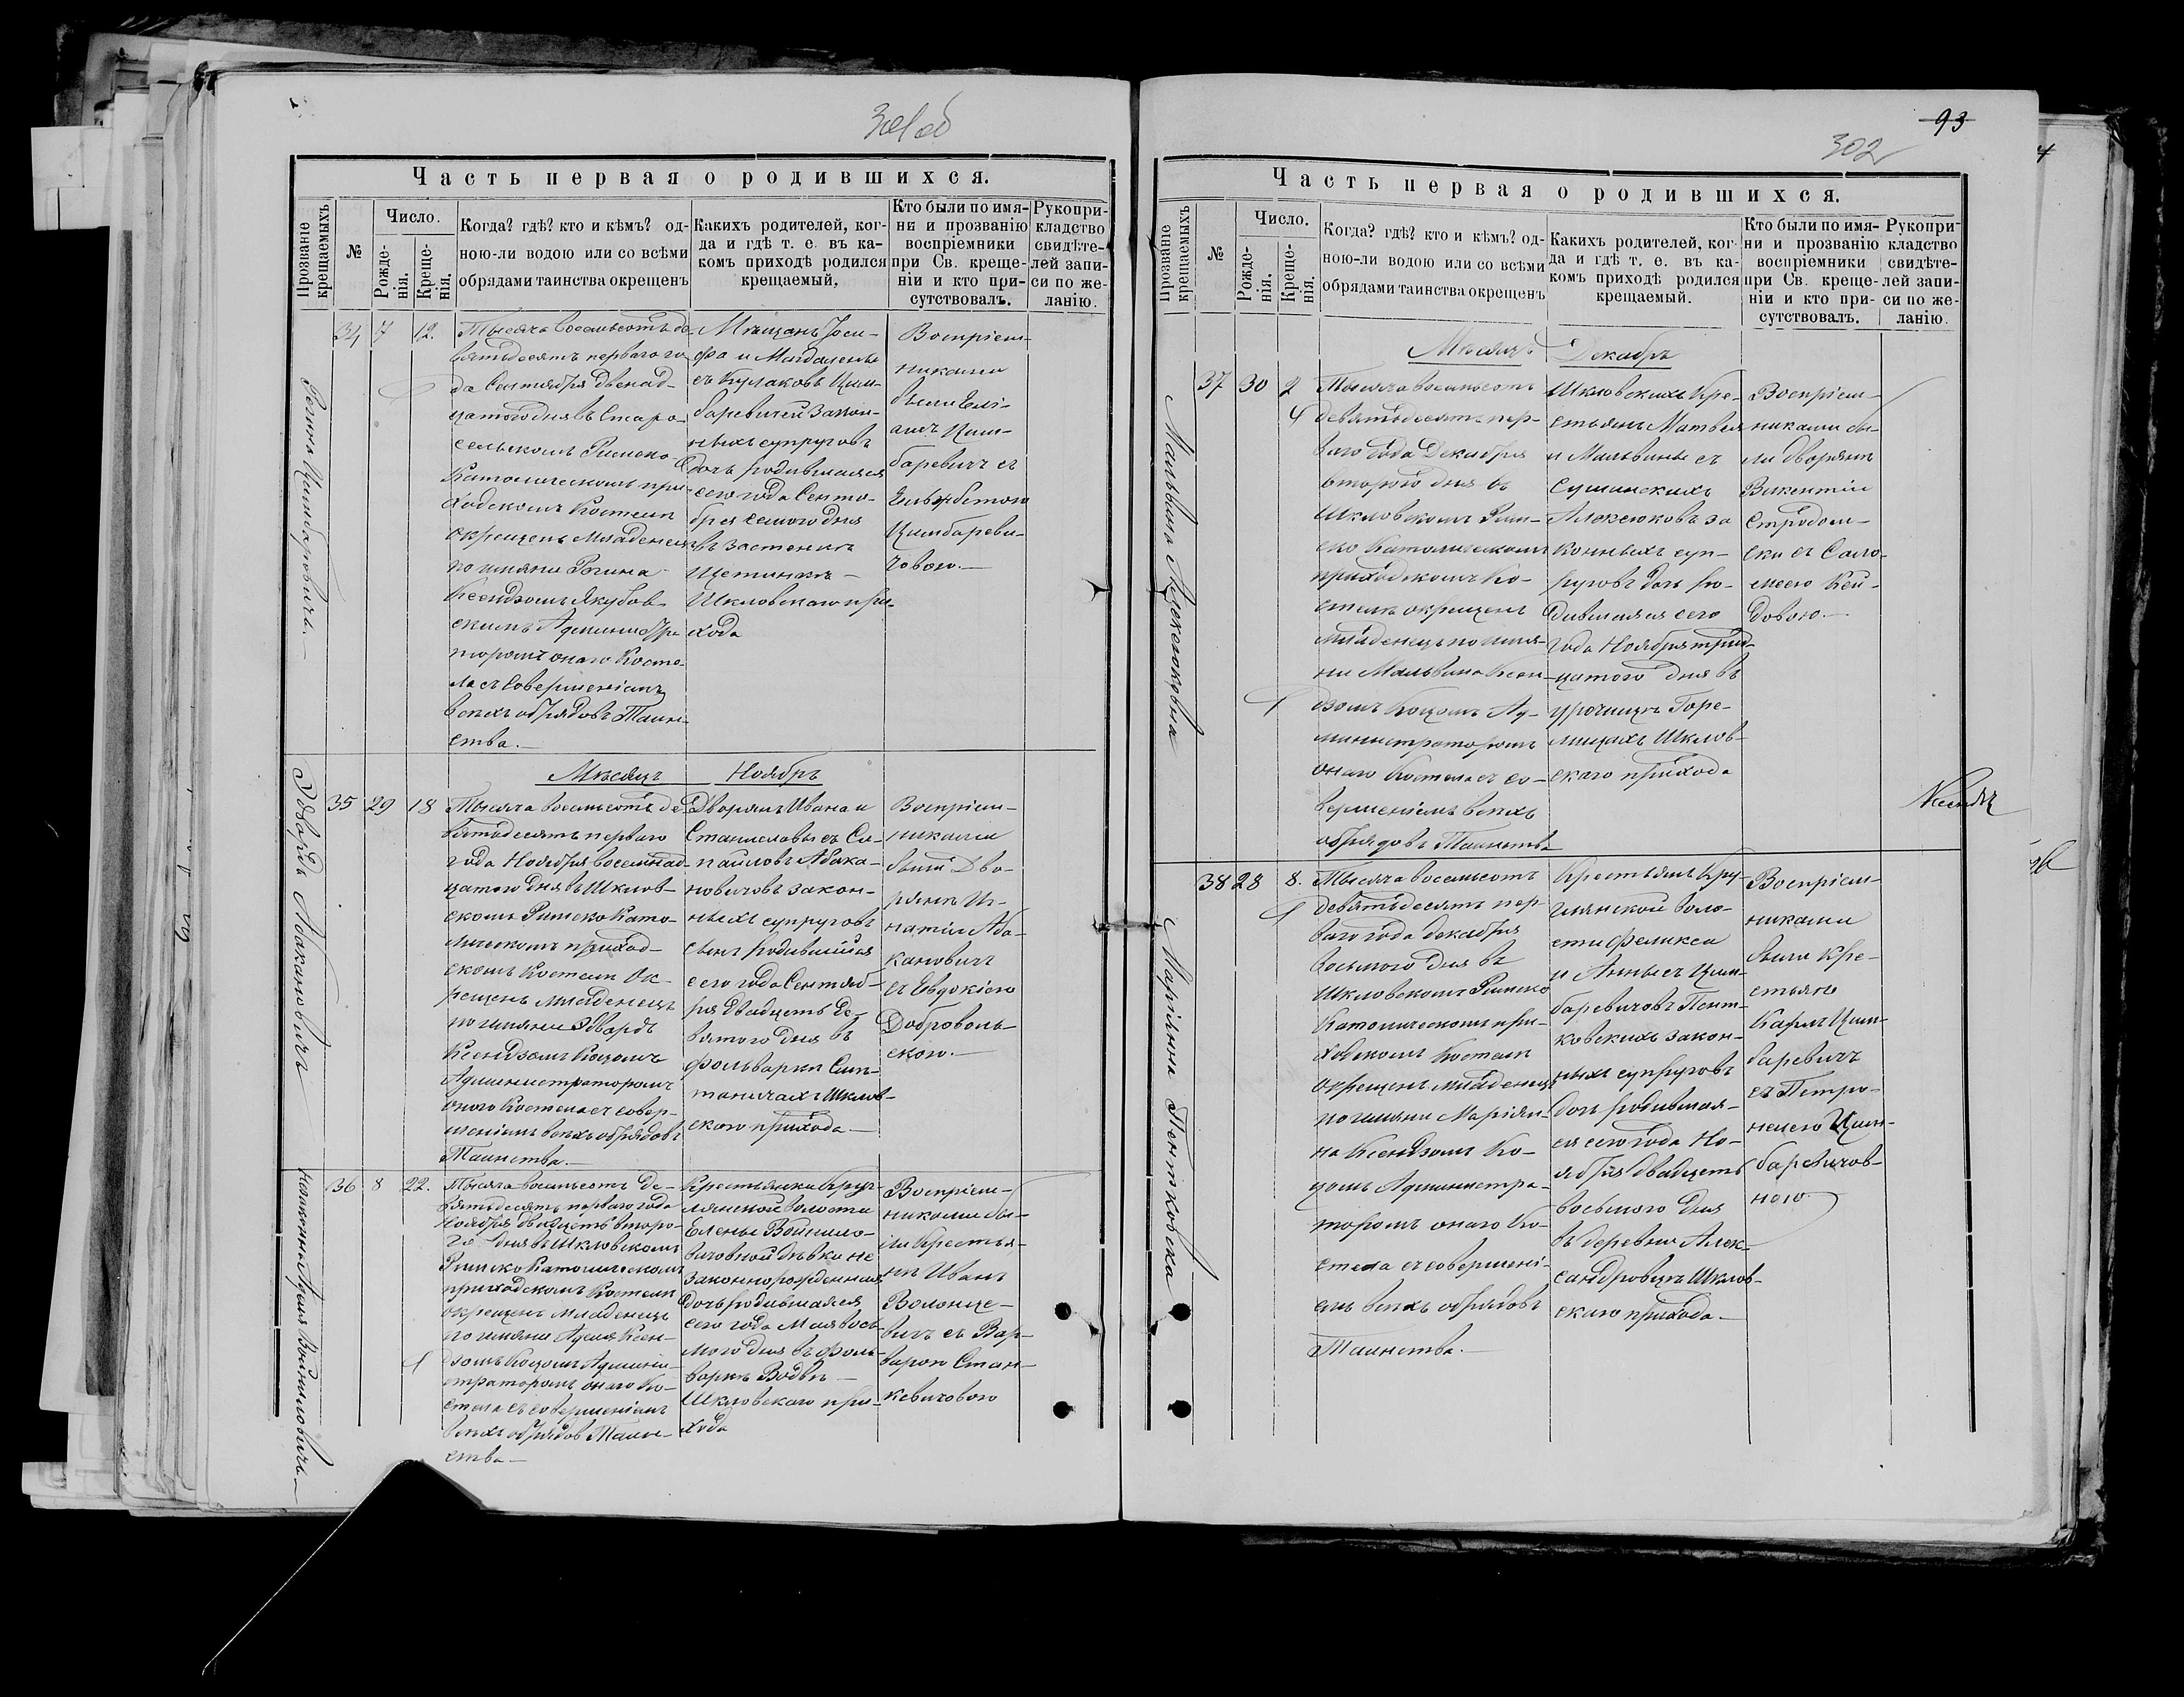 301об
Часть первая о родившихся.
Прозваніе крещаемыхъ
№
Число.
Рожде-
нія.
Креще-
нія.
Когда? гдѣ? кто и кѣмъ? од-
ною-ли водою или со всѣми
обрядами таинства окрещенъ
Какихъ родителей, ког-
да и гдѣ т. е. въ ка-
комъ приходѣ родился
крещаемый,
Кто были по имя-
ни и прозванію
воспріемники
при Св. креще-
ніи и кто при-
сутствовалъ.
Рукопри-
кладство
свидѣте-
лей запи-
си по же-
ланію.
34 7 12.
Тысяча восемьсотъ де-
вятьдесятъ перваго го-
да Сентября двенад-
цатого дня въ Старо-
сельскомъ Римско-
Католическомъ при-
ходскомъ Костеле
окрещенъ младенецъ
по имяни Регина
Ксендзомъ Якубов-
скимъ Администра
торомъ онаго Косте
ла съ совершеніемъ
всехъ обрядовъ Таин-
ства.—
Мещанъ Іоси-
фа и Магдалены
съ Кулаковъ Цим-
баревичей закон-
ныхъ супруговъ
дочь родившаяся
сего года Сентя-
бря семого дня
въ застенкѣ
Щетинкѣ—
Шкловскаго при-
хода
Воспріем-
никами
были
Цим-
баревичъ съ
Цимбареви-
човою.—
Регина Цимбаровичъ.—
Мѣсяцъ Ноябрь
35 29 18
Тысяча восемьсотъ де-
вятьдесятъ перваго
года Ноября восемнад-
цатого дня въ Шклов-
скомъ Римско Като-
лическомъ приход-
скомъ Костеле Ок-
рещенъ младенецъ
по имяни Эдвардъ
Ксендзомъ Коцомъ
Администраторомъ
оного Костела съ совер-
шеніемъ всехъ обрядовъ
Таинства.—
Дворянъ Ивана и
Станиславы съ Са-
пайловъ Абака-
новичовъ закон-
ныхъ супруговъ
сынъ родившійся
сего года Сентяб-
ря двадцать де-
вятого дня въ
фольварки Сим-
таничахъ Шклов-
скаго прихода.—
Воспріем-
никами
были Дво-
ряне Иг-
натій Аба-
кановичъ
съ Евдокіею
Доброволь-
скою.—
Эдвардъ Абакановичъ
36 8 22.
Тысяча восемьсотъ де-
вятьдесятъ перваго года
Ноября двадцать второ-
го дня въ Шкловскомъ
Римско Католическомъ
приходскомъ Костеле
окрещенъ младенецъ
по имяни Аделя Ксен-
дзомъ Коцомъ Админи-
страторомъ онаго Ко-
стела съ совершеніемъ
всехъ обрядов Таин-
ства—
Крестьянки Круг-
лянской волости
Елены Войнило-
вичовной дѣвки не
законнорожденная
дочь родившаяся
сего года Мая вось
мого дня въ фоль-
варкѣ Водвѣ—
Шкловскаго при-
хода
Воспріем-
никами бы-
ли крестья-
не Иванъ
Волонце-
вичъ съ Вар-
варою Стан-
кевичовою
Незаконная Аделя Войниловичъ.—
93
302
Часть первая о родившихся.
Прозваніе крещаемыхъ
№
Число.
Рожде-
нія.
Креще-
нія.
Когда? гдѣ? кто и кѣмъ? од-
ною-ли водою или со всѣми
обрядами таинства окрещенъ
Какихъ родителей, ког-
да и гдѣ т. е. въ ка-
комъ приходѣ родился
крещаемый.
Кто были по имя-
ни и прозванію
воспріемники
при Св. креще-
ніи и кто при-
сутствовалъ.
Рукопри-
кладство
свидѣте-
лей запи-
си по же-
ланію.
Мѣсяцъ Декабрь
37 30 2
Тысяча восемьсотъ
девятьдесятъ пер-
ваго года Декабря
второго дня въ
Шкловскомъ Рим-
ско Католическомъ
приходскомъ Ко-
стелѣ окрещенъ
младенецъ по имя-
ни Мальвина Ксен-
дзомъ Коцомъ Ад-
министраторомъ
онаго Костела съ со-
вершеніемъ всехъ
обрядовъ Таинства
Шкловскихъ Кре-
стьянъ Матвея
и Мальвины съ
Сушинскихъ
Алексюковъ за
конныхъ суп-
руговъ дочь ро-
дившаяся сего
года Ноября трид-
цатого дня въ
урочищѣ Горе-
мицахъ Шклов-
скаго прихода
Воспріем-
никами бы-
ли дворяне
Викентій
Стродом-
ски съ Сало-
меею Кей-
довою.—
Мальвина Алексюковна
Ксендз
38 28 8.
Тысяча восемьсотъ
девятьдесятъ пер
ваго года декабря
восьмого дня въ
Шкловскомъ Римско
Католическомъ при-
ходскомъ Костеле
окрещенъ младенецъ
по имяни Маріян-
на Ксендзомъ Ко-
цомъ Администра-
торомъ онаго Ко-
стела съ совершені-
емъ всехъ обрядовъ
Таинства.—
Крестьянъ Кру-
глянской воло-
сти Феликса
и Анны съ Цим-
баревичовъ Пент-
ковскихъ закон-
ныхъ супруговъ
дочь родившая-
ся сего года Но-
ября двадцать
восьмого дня
въ деревне Алек-
сандровцѣ Шклов-
скаго прихода.—
Воспріем-
никами
были Кре-
стьяне
Карлъ Цим-
баревичъ
съ Петро-
нелею Цим-
баревичов-
ною.
Маріянна Пентковска